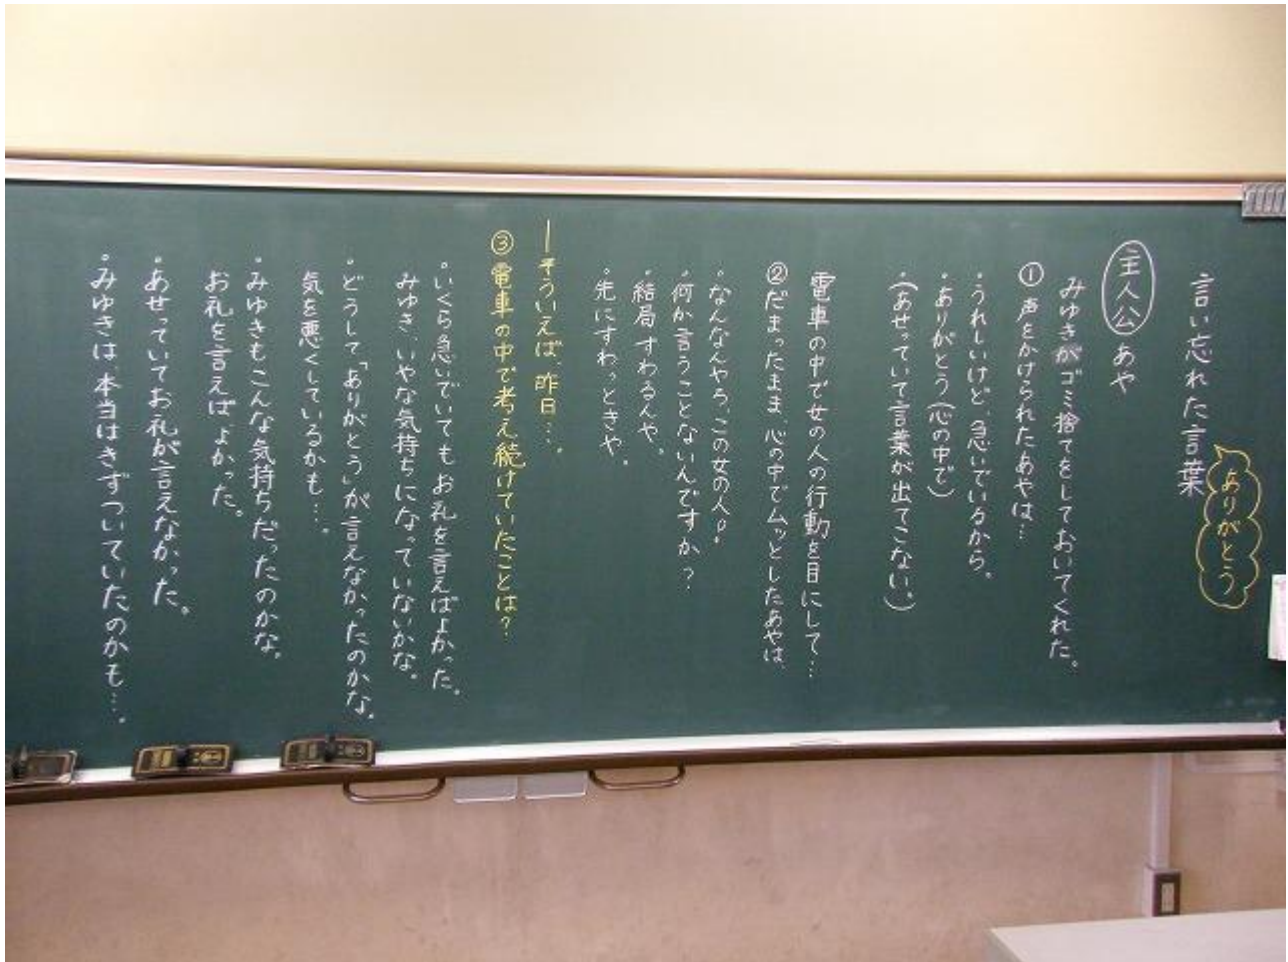 言い忘れた言葉
ありがとう
主人公 あや
みゆきがゴミ捨てをしておいてくれた。
① 声をかけられたあやは…
・うれしいけど、急いでいるから。
・ありがとう(心の中で)
・(あせっていて言葉が出てこない。)
電車の中で女の人の行動を目にして…
②だまったまま、心の中でムッとしたあやは
・なんなんやろ、この女の人!
・何か言うことないんですか?
・結局すわるんや。
・先にすわっときや。
―そういえば、昨日…。
③ 電車の中で考え続けていたことは?
・いくら急いでいてもお礼を言えばよかった。
みゆき、いやな気持ちになっていないかな。
・どうして「ありがとう」が言えなかったのかな。
気を悪くしているかも…。
・みゆきもこんな気持ちだったのかな。
お礼を言えばよかった。
・あせっていてお礼が言えなかった。
・みゆきは、本当はきずついていたのかも…。